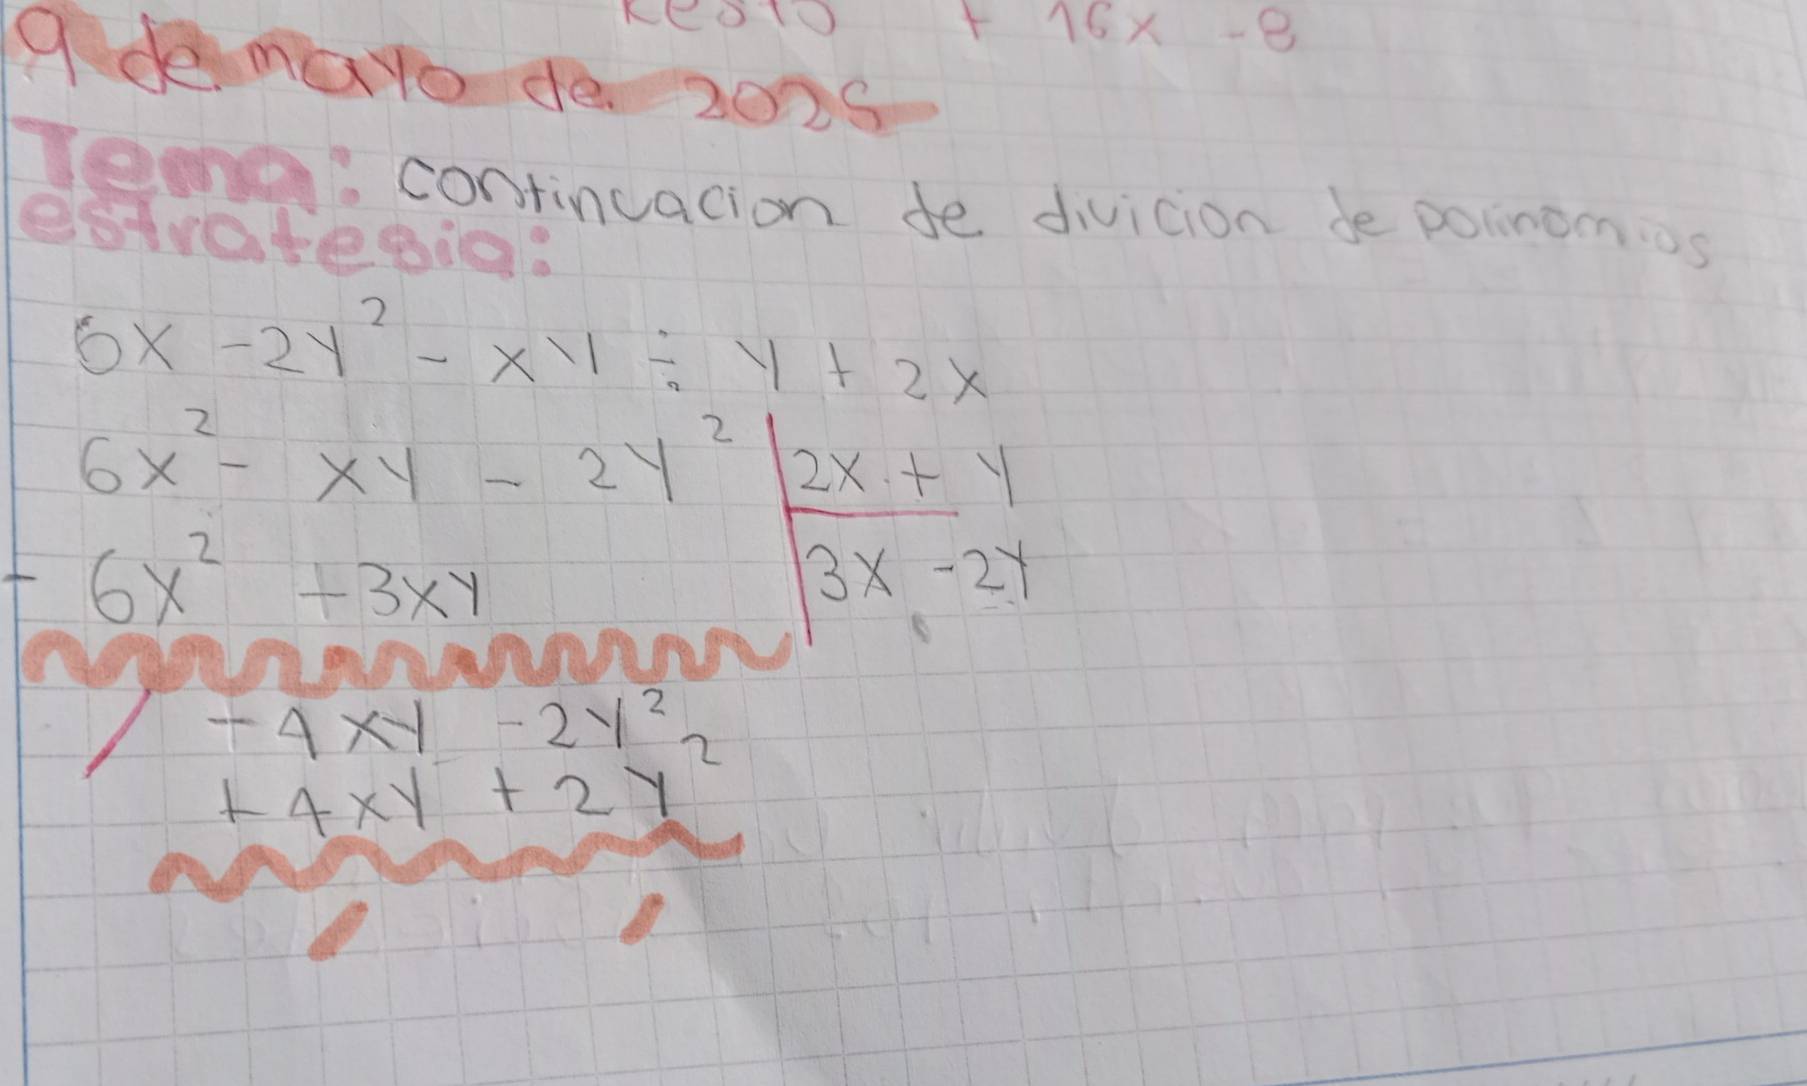 Resto + 16x - 8
9 de mayo de 2025
Tema: continuacion de divicion de polinomios
estrategia:
6x - 2y² - xy ÷ y + 2x
6x² - xy - 2y² | 2x + y
- 6x² + 3xy | 3x - 2y
- 4xy - 2y²
+ 4xy + 2y²